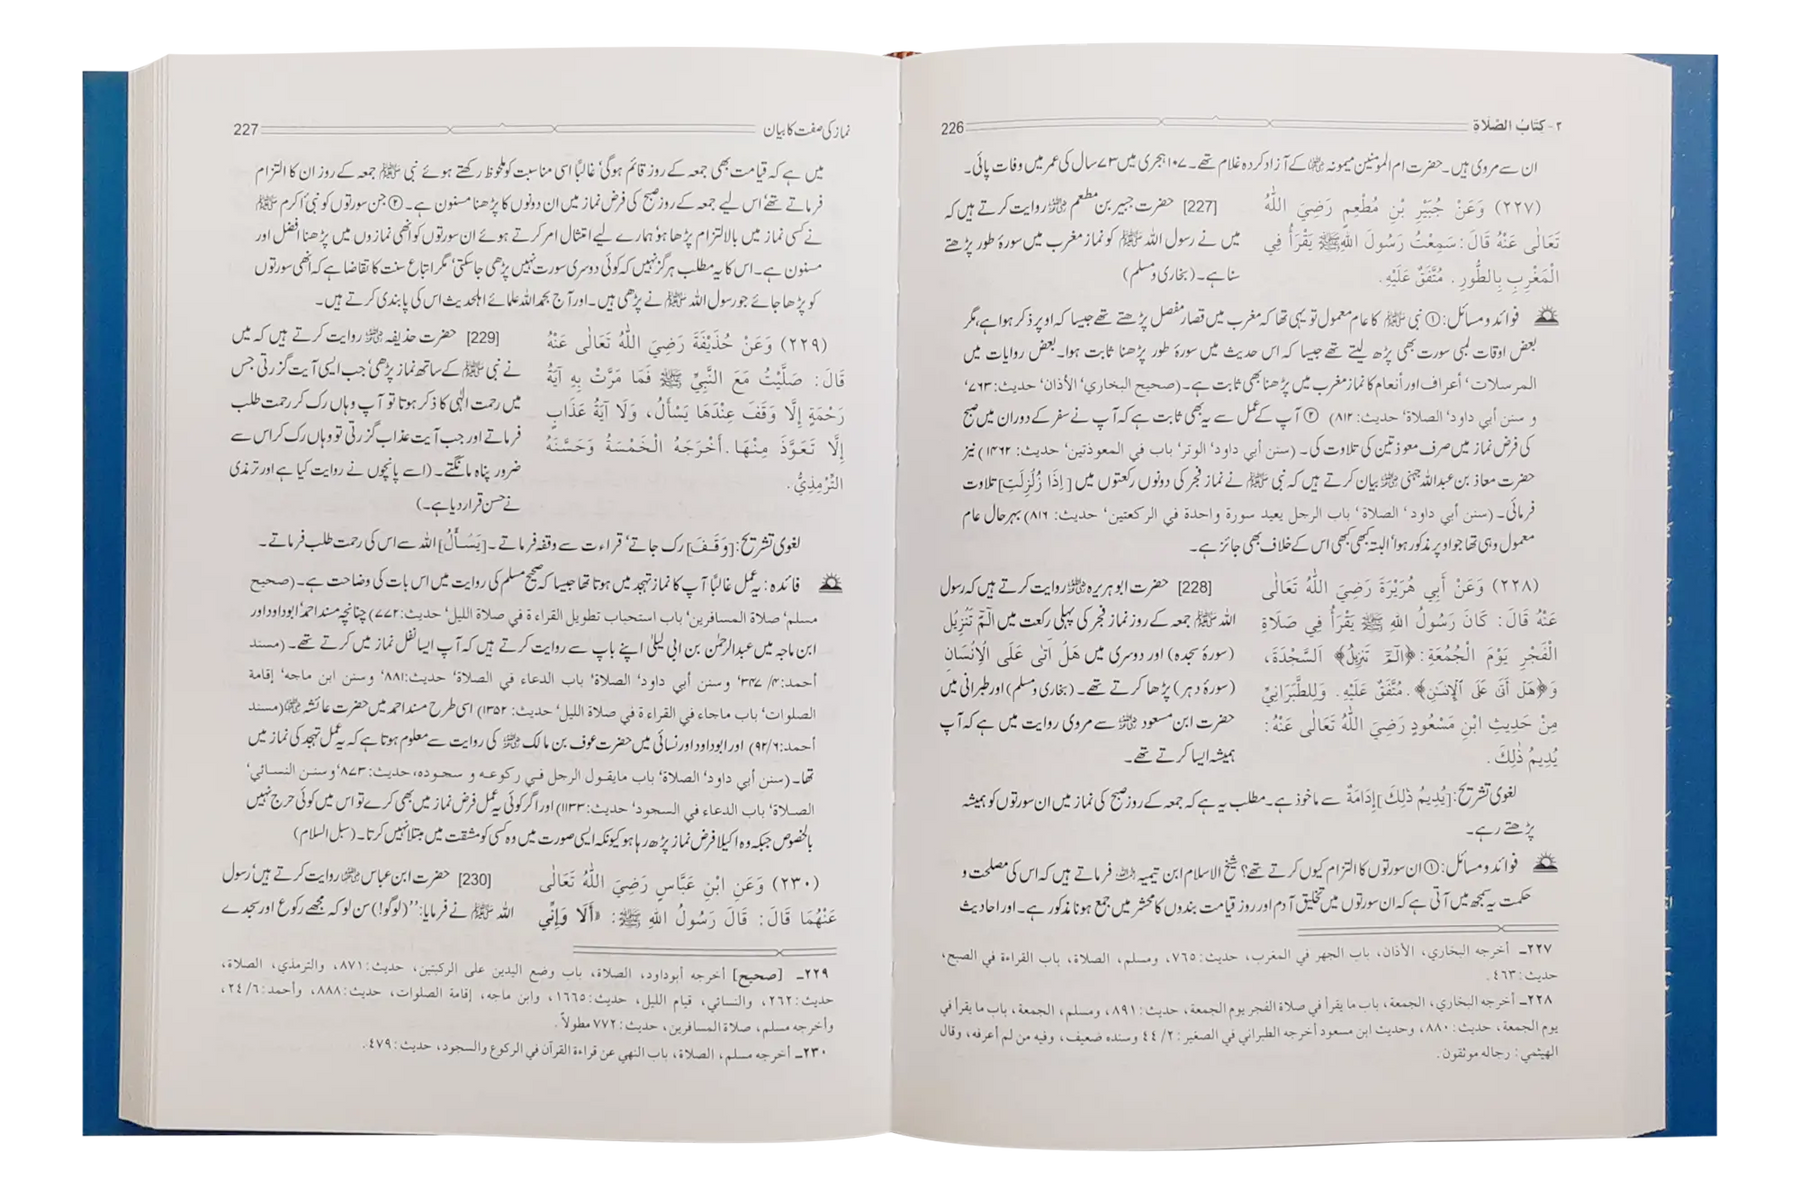 ۲- کِتَابُ الصَّلَاةِ 226
ان سے مروی ہیں۔ حضرت ام المومنین میمونہ ؓ کے آزاد کردہ غلام تھے۔ ۱۰۷ ہجری میں ۷۳ سال کی عمر میں وفات پائی۔
(٢٢٧) وَعَنْ جُبَيْرِ بْنِ مُطْعِمٍ رَضِيَ اللّٰهُ
تَعَالٰى عَنْهُ قَالَ: سَمِعْتُ رَسُولَ اللهِ ﷺ يَقْرَأُ فِي
الْمَغْرِبِ بِالطُّورِ. مُتَّفَقٌ عَلَيْهِ.
[227] حضرت جبیر بن مطعم ؓ روایت کرتے ہیں کہ
میں نے رسول اللہ ﷺ کو نماز مغرب میں سورۂ طور پڑھتے
سنا ہے۔ (بخاری و مسلم)
فوائد و مسائل: ① نبی ﷺ کا عام معمول تو یہی تھا کہ مغرب میں قصار مفصل پڑھتے تھے جیسا کہ اوپر ذکر ہوا ہے، مگر
بعض اوقات لمبی سورت بھی پڑھ لیتے تھے جیسا کہ اس حدیث میں سورۂ طور پڑھنا ثابت ہوا۔ بعض روایات میں
المرسلات‘ أعراف اور أنعام کا نماز مغرب میں پڑھنا بھی ثابت ہے۔ (صحيح البخاري‘ الأذان‘ حديث: ۷۶۳‘
و سنن أبي داود‘ الصلاة‘ حديث: ۸۱۲) ② آپ کے عمل سے یہ بھی ثابت ہے کہ آپ نے سفر کے دوران میں صبح
کی فرض نماز میں صرف معوذتین کی تلاوت کی۔ (سنن أبي داود‘ الوتر‘ باب في المعوذتين‘ حديث: ۱۴۶۲) نیز
حضرت معاذ بن عبداللہ جہنی ؓ بیان کرتے ہیں کہ نبی ﷺ نے نماز فجر کی دونوں رکعتوں میں [اِذَا زُلْزِلَتِ] تلاوت
فرمائی۔ (سنن أبي داود‘ الصلاة‘ باب الرجل يعيد سورة واحدة في الركعتين‘ حديث: ۸۱۶) بہرحال عام
معمول وہی تھا جو اوپر مذکور ہوا‘ البتہ کبھی کبھی اس کے خلاف بھی جائز ہے۔
(٢٢٨) وَعَنْ أَبِي هُرَيْرَةَ رَضِيَ اللّٰهُ تَعَالٰى
عَنْهُ قَالَ: كَانَ رَسُولُ اللهِ ﷺ يَقْرَأُ فِي صَلَاةِ
الْفَجْرِ يَوْمَ الْجُمُعَةِ: ﴿الٓمٓ تَنزِيلُ﴾ اَلسَّجْدَةَ،
وَ﴿هَلْ أَتَىٰ عَلَى الْإِنسَٰنِ﴾. مُتَّفَقٌ عَلَيْهِ. وَلِلطَّبَرَانِيِّ
مِنْ حَدِيثِ ابْنِ مَسْعُودٍ رَضِيَ اللّٰهُ تَعَالٰى عَنْهُ:
يُدِيمُ ذٰلِكَ.
[228] حضرت ابوہریرہ ؓ روایت کرتے ہیں کہ رسول
اللہ ﷺ جمعہ کے روز نماز فجر کی پہلی رکعت میں الٓمّٓ تَنْزِیْلُ
(سورۂ سجدہ) اور دوسری میں هَلْ اَتٰی عَلَی الْاِنْسَانِ
(سورۂ دہر) پڑھا کرتے تھے۔ (بخاری و مسلم) اور طبرانی میں
حضرت ابن مسعود ؓ سے مروی روایت میں ہے کہ آپ
ہمیشہ ایسا کرتے تھے۔
لغوی تشریح: [يُدِيمُ ذٰلِكَ] إِدَامَةٌ سے ماخوذ ہے۔ مطلب یہ ہے کہ جمعہ کے روز صبح کی نماز میں ان سورتوں کو ہمیشہ
پڑھتے رہے۔
فوائد و مسائل: ① ان سورتوں کا التزام کیوں کرتے تھے؟ شیخ الاسلام ابن تیمیہ ؒ فرماتے ہیں کہ اس کی مصلحت و
حکمت یہ سمجھ میں آتی ہے کہ ان سورتوں میں تخلیق آدم اور روز قیامت بندوں کا محشر میں جمع ہونا مذکور ہے۔ اور احادیث
٢٢٧ـ أخرجه البخاري، الأذان، باب الجهر في المغرب، حديث: ٧٦٥، ومسلم، الصلاة، باب القراءة في الصبح،
حديث: ٤٦٣.
٢٢٨ـ أخرجه البخاري، الجمعة، باب ما يقرأ في صلاة الفجر يوم الجمعة، حديث: ٨٩١، ومسلم، الجمعة، باب ما يقرأ في
يوم الجمعة، حديث: ٨٨٠، وحديث ابن مسعود أخرجه الطبراني في الصغير: ٢/ ٤٤ وسنده ضعيف، وفيه من لم أعرفه، وقال
الهيثمي: رجاله موثقون.
نماز کی صفت کا بیان 227
میں ہے کہ قیامت بھی جمعہ کے روز قائم ہوگی‘ غالبًا اسی مناسبت کو ملحوظ رکھتے ہوئے نبی ﷺ جمعہ کے روز ان کا التزام
فرماتے تھے‘ اس لیے جمعہ کے روز صبح کی فرض نماز میں ان دونوں کا پڑھنا مسنون ہے۔ ② جن سورتوں کو نبی ٔ اکرم ﷺ
نے کسی نماز میں بالالتزام پڑھا ہو‘ ہمارے لیے امتثال امر کرتے ہوئے ان سورتوں کو انھی نمازوں میں پڑھنا افضل اور
مسنون ہے۔ اس کا یہ مطلب ہرگز نہیں کہ کوئی دوسری سورت نہیں پڑھی جاسکتی‘ مگر اتباع سنت کا تقاضا ہے کہ انھی سورتوں
کو پڑھا جائے جو رسول اللہ ﷺ نے پڑھی ہیں۔ اور آج بحمد اللہ علمائے اہلحدیث اس کی پابندی کرتے ہیں۔
(٢٢٩) وَعَنْ حُذَيْفَةَ رَضِيَ اللّٰهُ تَعَالٰى عَنْهُ
قَالَ: صَلَّيْتُ مَعَ النَّبِيِّ ﷺ فَمَا مَرَّتْ بِهِ آيَةُ
رَحْمَةٍ إِلَّا وَقَفَ عِنْدَهَا يَسْأَلُ، وَلَا آيَةُ عَذَابٍ
إِلَّا تَعَوَّذَ مِنْهَا. أَخْرَجَهُ الْخَمْسَةُ وَحَسَّنَهُ
التِّرْمِذِيُّ.
[229] حضرت حذیفہ ؓ روایت کرتے ہیں کہ میں
نے نبی ﷺ کے ساتھ نماز پڑھی‘ جب ایسی آیت گزرتی جس
میں رحمت الٰہی کا ذکر ہوتا تو آپ وہاں رک کر رحمت طلب
فرماتے اور جب آیت عذاب گزرتی تو وہاں رک کر اس سے
ضرور پناہ مانگتے۔ (اسے پانچوں نے روایت کیا ہے اور ترمذی
نے حسن قرار دیا ہے۔)
لغوی تشریح: [وَقَـفَ] رک جاتے‘ قراءت سے وقفہ فرماتے۔ [يَسْـأَلُ] اللہ سے اس کی رحمت طلب فرماتے۔
فائدہ: یہ عمل غالبًا آپ کا نماز تہجد میں ہوتا تھا جیسا کہ صحیح مسلم کی روایت میں اس بات کی وضاحت ہے۔ (صحيح
مسلم‘ صلاة المسافرين‘ باب استحباب تطويل القراءة في صلاة الليل‘ حديث: ۷۷۲) چنانچہ مسند احمد‘ ابوداود اور
ابن ماجہ میں عبدالرحمٰن بن ابی لیلیٰ اپنے باپ سے روایت کرتے ہیں کہ آپ ایسا نفل نماز میں کرتے تھے۔ (مسند
أحمد: ۴/ ۳۴۷‘ وسنن أبي داود‘ الصلاة‘ باب الدعاء في الصلاة‘ حديث: ۸۸۱‘ وسنن ابن ماجه‘ إقامة
الصلوات‘ باب ماجاء في القراءة في صلاة الليل‘ حديث: ۱۳۵۲) اسی طرح مسند احمد میں حضرت عائشہ ؓ (مسند
أحمد: ۶/ ۹۲) اور ابوداود اور نسائی میں حضرت عوف بن مالک ؓ کی روایت سے معلوم ہوتا ہے کہ یہ عمل تہجد کی نماز میں
تھا۔ (سنن أبي داود‘ الصلاة‘ باب مايقول الرجل في ركوعه و سجوده، حديث: ۸۷۳‘ وسنن النسائي‘
الصلاة‘ باب الدعاء في السجود‘ حديث: ۱۱۳۳) اور اگر کوئی یہ عمل فرض نماز میں بھی کرے تو اس میں کوئی حرج نہیں
بالخصوص جبکہ وہ اکیلا فرض نماز پڑھ رہا ہو کیونکہ ایسی صورت میں وہ کسی کو مشقت میں مبتلا نہیں کرتا۔ (سبل السلام)
(٢٣٠) وَعَنِ ابْنِ عَبَّاسٍ رَضِيَ اللّٰهُ تَعَالٰى
عَنْهُمَا قَالَ: قَالَ رَسُولُ اللهِ ﷺ: «أَلَا وَإِنِّي
[230] حضرت ابن عباس ؓ روایت کرتے ہیں‘ رسول
اللہ ﷺ نے فرمایا: ’’(لوگو!) سن لو کہ مجھے رکوع اور سجدے
٢٢٩ـ [صحيح] أخرجه أبوداود، الصلاة، باب وضع اليدين على الركبتين، حديث: ٨٧١، والترمذي، الصلاة،
حديث: ٢٦٢، والنسائي، قيام الليل، حديث: ١٦٦٥، وابن ماجه، إقامة الصلوات، حديث: ٨٨٨، وأحمد: ٦/ ٢٤،
وأخرجه مسلم، صلاة المسافرين، حديث: ٧٧٢ مطولاً.
٢٣٠ـ أخرجه مسلم، الصلاة، باب النهي عن قراءة القرآن في الركوع والسجود، حديث: ٤٧٩.